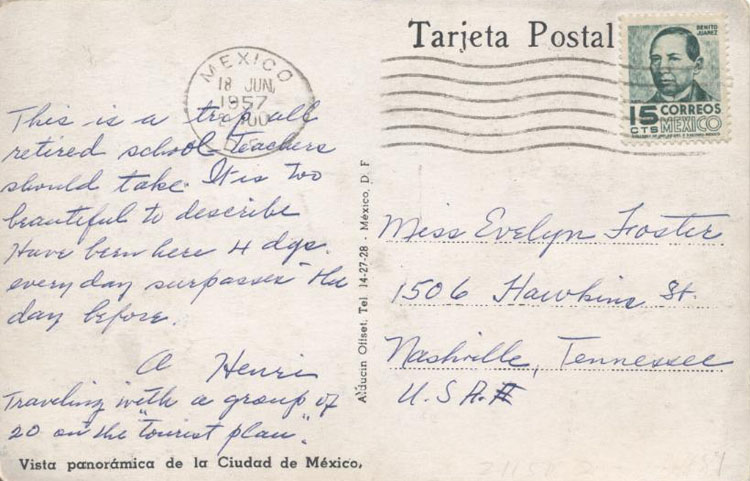 Tarjeta Postal
BENITO
JUAREZ
15 CORREOS
CTS MEXICO
MEXICO
18 JUN.
1957
This is a trip all
retired school teachers
should take. It is too
beautiful to describe
Have been here 4 dys.
every day surpasses the
day before.
A Henri
Traveling with a group of
20 on the "tourist plan".
Vista panorámica de la Ciudad de México.
Alducin Offset. Tel. 14-27-28 - México, D. F
Miss Evelyn Foster
1506 Hawkins St.
Nashville, Tennessee
U.S.A.